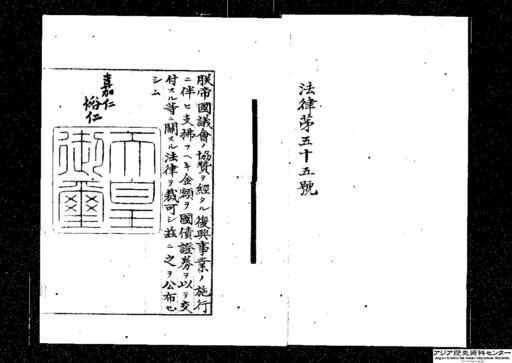 法律第五十五號
朕帝國議會ノ協贊ヲ經タル復興事業ノ施行
ニ伴ヒ支拂フヘキ金額ヲ國債證券ヲ以テ交
付スル等ニ關スル法律ヲ裁可シ茲ニ之ヲ公布セ
シム
嘉仁
裕仁
天皇
御璽
アジア歴史資料センター
Japan Center for Asian Historical Records